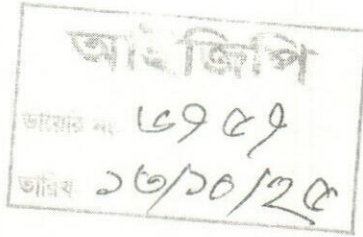 আইজিপি
ডায়েরি নং ৬৭৫৭
তারিখ ১৩/১০/২৫